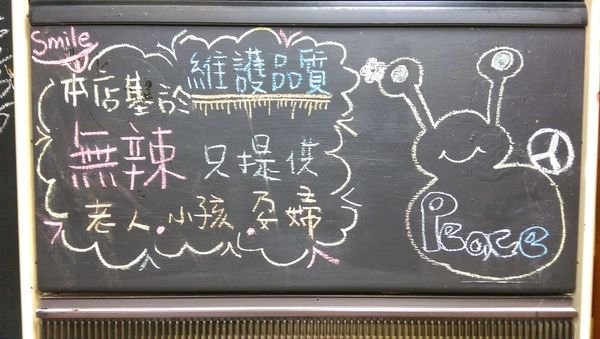 Smile
本店基於 維護品質
無辣 只提供
老人.小孩.孕婦
Peace